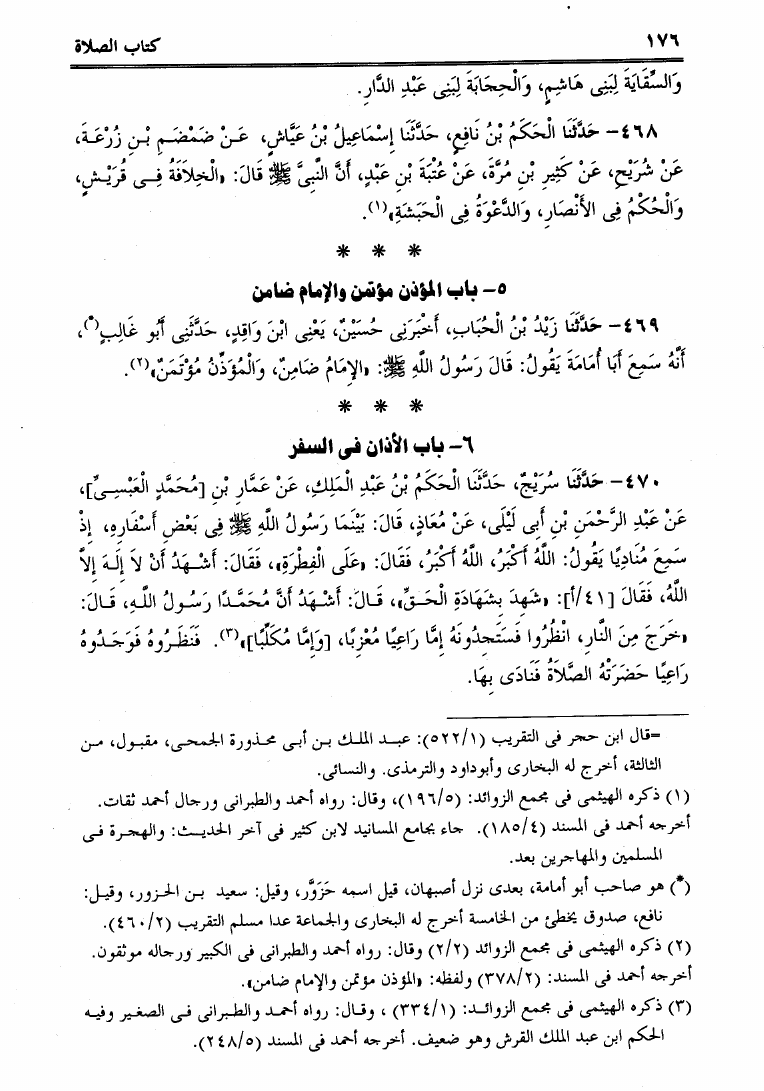 ١٧٦ كتاب الصلاة
وَالسِّقَايَةَ لِبَنِى هَاشِمٍ، وَالْحِجَابَةَ لِبَنِى عَبْدِ الدَّارِ.
٤٦٨- حَدَّثَنَا الْحَكَمُ بْنُ نَافِعٍ، حَدَّثَنَا إِسْمَاعِيلُ بْنُ عَيَّاشٍ، عَنْ ضَمْضَمِ بْنِ زُرْعَةَ،
عَنْ شُرَيْحٍ، عَنْ كَثِيرِ بْنِ مُرَّةَ، عَنْ عُتْبَةَ بْنِ عَبْدٍ، أَنَّ النَّبِىَّ ﷺ قَالَ: «الْخِلاَفَةُ فِى قُرَيْشٍ،
وَالْحُكْمُ فِى الأَنْصَارِ، وَالدَّعْوَةُ فِى الْحَبَشَةِ»(١).
* * *
٥- باب المؤذن مؤتمن والإمام ضامن
٤٦٩- حَدَّثَنَا زَيْدُ بْنُ الْحُبَابِ، أَخْبَرَنِى حُسَيْنٌ، يَعْنِى ابْنَ وَاقِدٍ، حَدَّثَنِى أَبُو غَالِبٍ(*)،
أَنَّهُ سَمِعَ أَبَا أُمَامَةَ يَقُولُ: قَالَ رَسُولُ اللَّهِ ﷺ: «الإِمَامُ ضَامِنٌ، وَالْمُؤَذِّنُ مُؤْتَمَنٌ»(٢).
* * *
٦- باب الأذان فى السفر
٤٧٠- حَدَّثَنَا سُرَيْجٌ، حَدَّثَنَا الْحَكَمُ بْنُ عَبْدِ الْمَلِكِ، عَنْ عَمَّارِ بْنِ [مُحَمَّدٍ الْعَبْسِىِّ]،
عَنْ عَبْدِ الرَّحْمَنِ بْنِ أَبِى لَيْلَى، عَنْ مُعَاذٍ، قَالَ: بَيْنَمَا رَسُولُ اللَّهِ ﷺ فِى بَعْضِ أَسْفَارِهِ، إِذْ
سَمِعَ مُنَادِيًا يَقُولُ: اللَّهُ أَكْبَرُ، اللَّهُ أَكْبَرُ، فَقَالَ: «عَلَى الْفِطْرَةِ»، فَقَالَ: أَشْهَدُ أَنْ لاَ إِلَهَ إِلاَّ
اللَّهُ، فَقَالَ [٤١/أ]: «شَهِدَ بِشَهَادَةِ الْحَقِّ»، قَالَ: أَشْهَدُ أَنَّ مُحَمَّدًا رَسُولُ اللَّهِ، قَالَ:
«خَرَجَ مِنَ النَّارِ، انْظُرُوا فَسَتَجِدُونَهُ إِمَّا رَاعِيًا مُعْزِبًا، [وَإِمَّا مُكَلِّبًا]»(٣). فَنَظَرُوهُ فَوَجَدُوهُ
رَاعِيًا حَضَرَتْهُ الصَّلاَةُ فَنَادَى بِهَا.
=قال ابن حجر فى التقريب (٥٢٢/١): عبد الملك بن أبى محذورة الجمحى، مقبول، من
الثالثة، أخرج له البخارى وأبوداود والترمذى. والنسائى.
(١) ذكره الهيثمى فى مجمع الزوائد: (١٩٦/٥)، وقال: رواه أحمد والطبرانى ورجال أحمد ثقات.
أخرجه أحمد فى المسند (١٨٥/٤). جاء بجامع المسانيد لابن كثير فى آخر الحديث: والهجرة فى
المسلمين والمهاجرين بعد.
(*) هو صاحب أبو أمامة، بعدى نزل أصبهان، قيل اسمه حَزَوَّر، وقيل: سعيد بن الحزور، وقيل:
نافع، صدوق يخطئ من الخامسة أخرج له البخارى والجماعة عدا مسلم التقريب (٤٦٠/٢).
(٢) ذكره الهيثمى فى مجمع الزوائد (٢/٢) وقال: رواه أحمد والطبرانى فى الكبير ورجاله موثقون.
أخرجه أحمد فى المسند: (٣٧٨/٢) ولفظه: «المؤذن مؤتمن والإمام ضامن».
(٣) ذكره الهيثمى فى مجمع الزوائد: (٣٣٤/١) ، وقال: رواه أحمد والطبرانى فى الصغير وفيه
الحكم ابن عبد الملك القرش وهو ضعيف. أخرجه أحمد فى المسند (٢٤٨/٥).